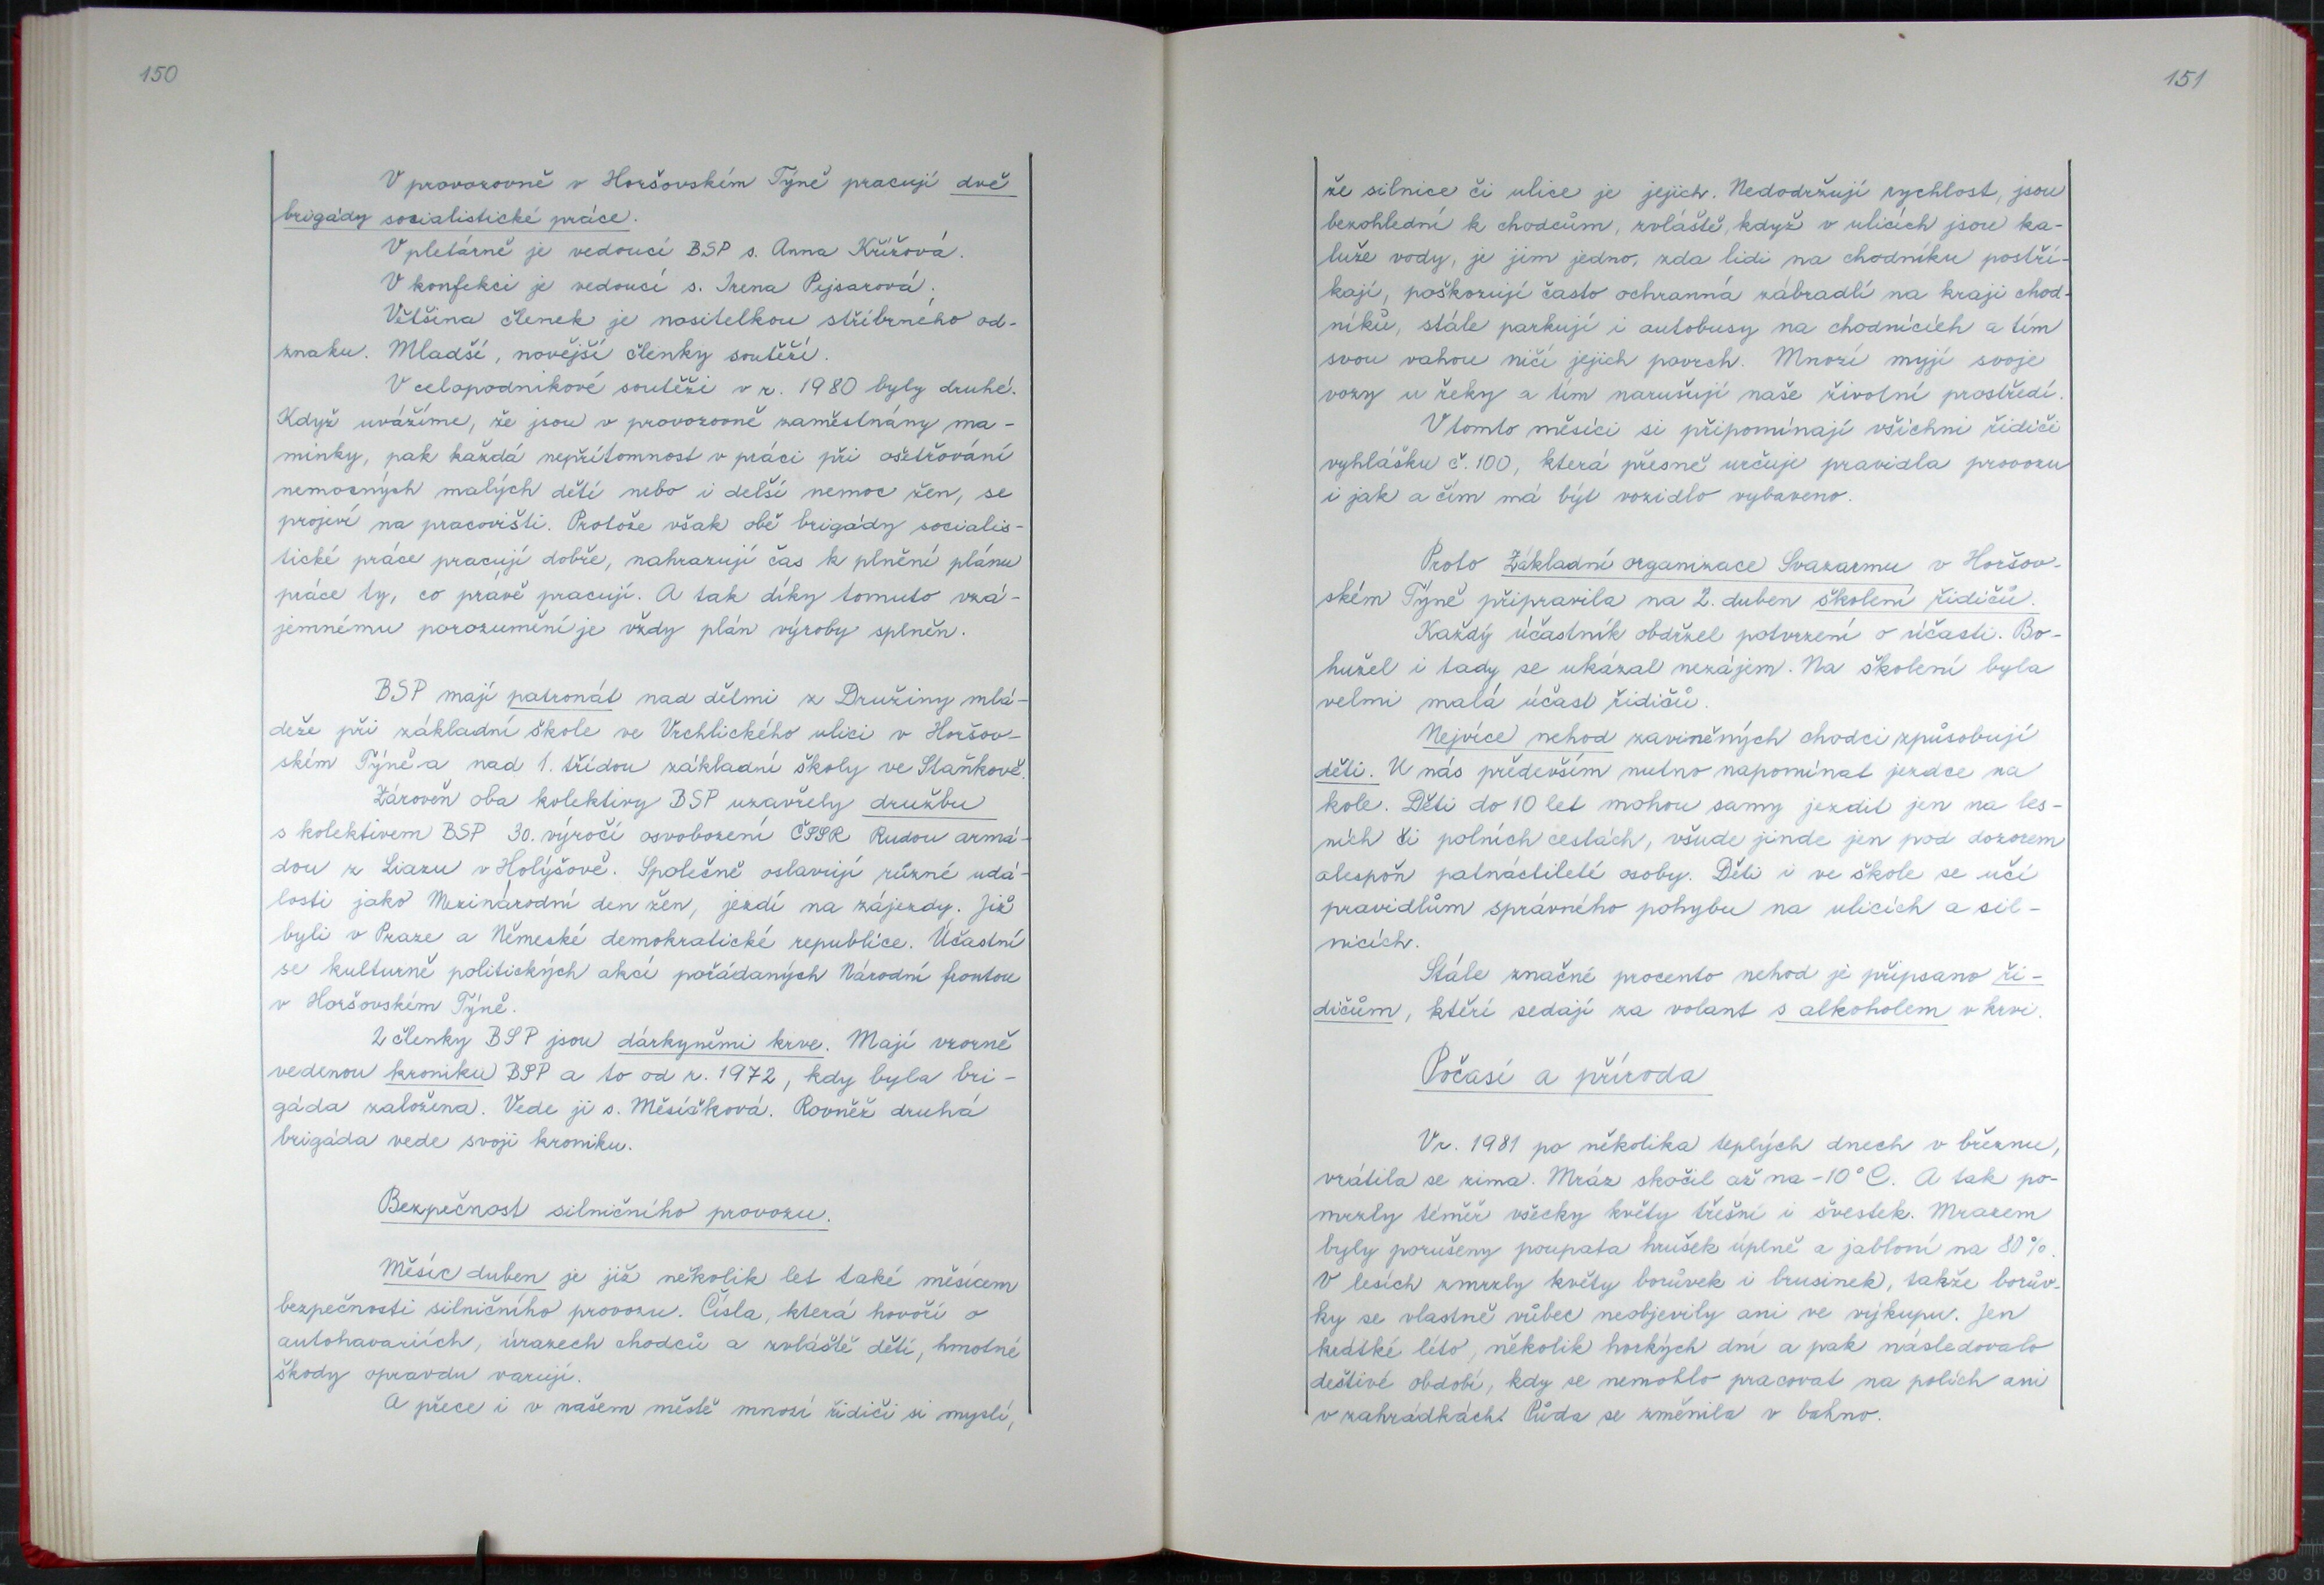 150
V provozovně v Horšovském Týně pracují dvě
brigády socialistické práce.
V pletárně je vedoucí BSP s. Anna Křížová.
V konfekci je vedoucí s. Irena Pejsarová.
Většina členek je nositelkou stříbrného od-
znaku. Mladší, novější členky soutěží.
V celopodnikové soutěži v r. 1980 byly druhé.
Když uvážíme, že jsou v provozovně zaměstnány ma-
minky, pak každá nepřítomnost v práci při ošetřování
nemocných malých dětí nebo i delší nemoc žen, se
projeví na pracovišti. Protože však obě brigády socialis-
tické práce pracují dobře, nahrazují čas k plnění plánu
práce ty, co právě pracují. A tak díky tomuto vzá-
jemnému porozumění je vždy plán výroby splněn.
BSP mají patronát nad dětmi z Družiny mlá-
deže při základní škole ve Vrchlického ulici v Horšov-
ském Týně a nad 1. třídou základní školy ve Staňkově.
Zároveň oba kolektivy BSP uzavřely družbu
s kolektivem BSP 30. výročí osvobození ČSSR Rudou armá-
dou z Liazu v Holýšově. Společně oslavují různé udá-
losti jako Mezinárodní den žen, jezdí na zájezdy. Již
byli v Praze a Německé demokratické republice. Účastní
se kulturně politických akcí pořádaných Národní frontou
v Horšovském Týně.
2 členky BSP jsou dárkyněmi krve. Mají vzorně
vedenou kroniku BSP a to od r. 1972, kdy byla bri-
gáda založena. Vede ji s. Měsíčková. Rovněž druhá
brigáda vede svoji kroniku.
Bezpečnost silničního provozu.
Měsíc duben je již několik let také měsícem
bezpečnosti silničního provozu. Čísla, která hovoří o
autohavariích, úrazech chodců a zvláště dětí, hmotné
škody opravdu varují.
A přece i v našem městě mnozí řidiči si myslí,
151
že silnice či ulice je jejich. Nedodržují rychlost, jsou
bezohlední k chodcům, zvláště, když v ulicích jsou ka-
luže vody, je jim jedno, zda lidi na chodníku postří-
kají, poškozují často ochranná zábradlí na kraji chod-
níků, stále parkují i autobusy na chodnících a tím
svou vahou ničí jejich povrch. Mnozí myjí svoje
vozy u řeky a tím narušují naše životní prostředí.
V tomto měsíci si připomínají všichni řidiči
vyhlášku č. 100, která přesně určuje pravidla provozu
i jak a čím má být vozidlo vybaveno.
Proto Základní organizace Svazarmu v Horšov-
ském Týně připravila na 2. duben školení řidičů.
Každý účastník obdržel potvrzení o účasti. Bo-
hužel i tady se ukázal nezájem. Na školení byla
velmi malá účast řidičů.
Nejvíce nehod zaviněných chodci způsobují
děti. U nás především nutno napomínat jezdce na
kole. Děti do 10 let mohou samy jezdit jen na les-
ních či polních cestách, všude jinde jen pod dozorem
alespoň patnáctileté osoby. Děti i ve škole se učí
pravidlům správného pohybu na ulicích a sil-
nicích.
Stále značné procento nehod je připsano ři-
dičům, kteří sedají za volant s alkoholem v krvi.
Počasí a příroda
V r. 1981 po několika teplých dnech v březnu,
vrátila se zima. Mráz skočil až na -10°C. A tak po-
mrzly téměř všecky květy třešní i švestek. Mrazem
byly porušeny poupata hrušek úplně a jabloní na 80%.
V lesích zmrzly květy borůvek i brusinek, takže borův-
ky se vlastně vůbec neobjevily ani ve výkupu. Jen
krátké léto, několik horkých dní a pak následovalo
deštivé období, kdy se nemohlo pracovat na polích ani
v zahrádkách. Půda se změnila v bahno.